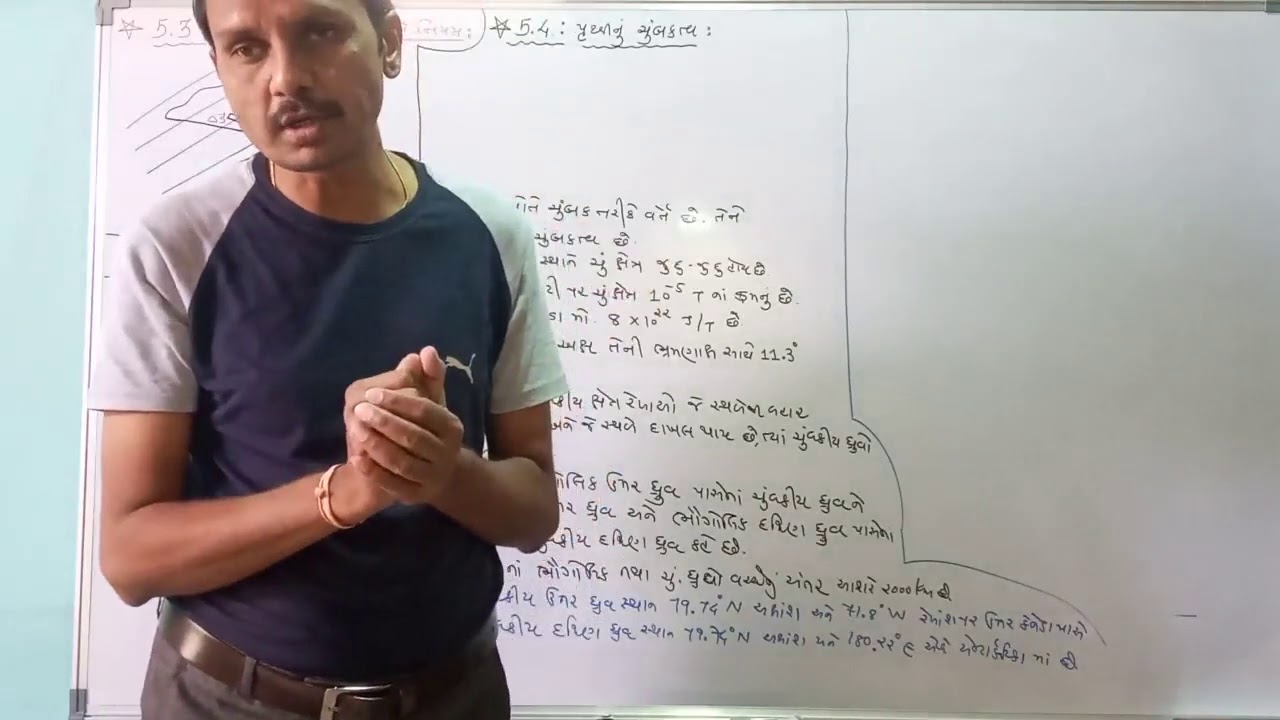 ☆ 5.3
નિયમ :
☆ 5.4 : પૃથ્વીનું ચુંબકત્વ :
ચુંબક તરીકે વર્તે છે. તેને
ચુંબકત્વ છે.
સ્થાને ચું ક્ષેત્ર જુદુ-જુદુ હોય છે
પર ચું ક્ષેત્ર 10⁻⁵ T નાં ક્રમનું છે.
મો. 8 x 10²² J/T છે
અક્ષ તેની ભ્રમણાક્ષ સાથે 11.3°
ક્ષેત્ર રેખાઓ જે સ્થળેથી બહાર
અને જે સ્થળે દાખલ થાય છે, ત્યાં ચુંબકીય ધ્રુવો
ઉત્તર ધ્રુવ પાસેનાં ચુંબકીય ધ્રુવને
ધ્રુવ અને ભૌગોલિક દક્ષિણ ધ્રુવ પાસેના
દક્ષિણ ધ્રુવ કહે છે.
નાં ભૌગોલિક તથા ચું. ધ્રુવો વચ્ચેનું અંતર આશરે 2000 km છે
ઉત્તર ધ્રુવ સ્થાન 79.74° N અક્ષાંશ અને 71.8° W રેખાંશ પર ઉત્તર કેનેડા પાસે
દક્ષિણ ધ્રુવ સ્થાન 79.74° N અક્ષાંશ અને 180.22° E એન્ટાર્કટિકા માં છે